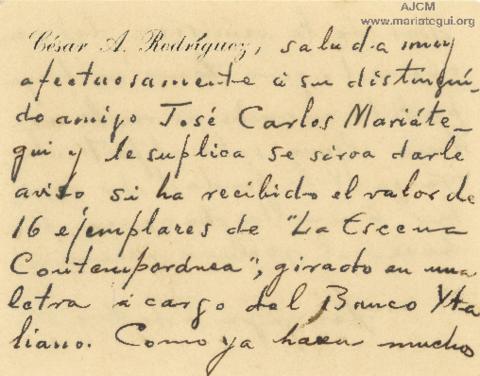 AJCM
www.mariategui.org
César A. Rodríguez, saluda muy
afectuosamente á su distingui_
do amigo José Carlos Mariáte_
gui y le suplica se sirva darle
aviso si ha recibido el valor de
16 ejemplares de "La Escena
Contemporánea", girado en una
letra á cargo del Banco Yta
liano. Como ya hacen mucho